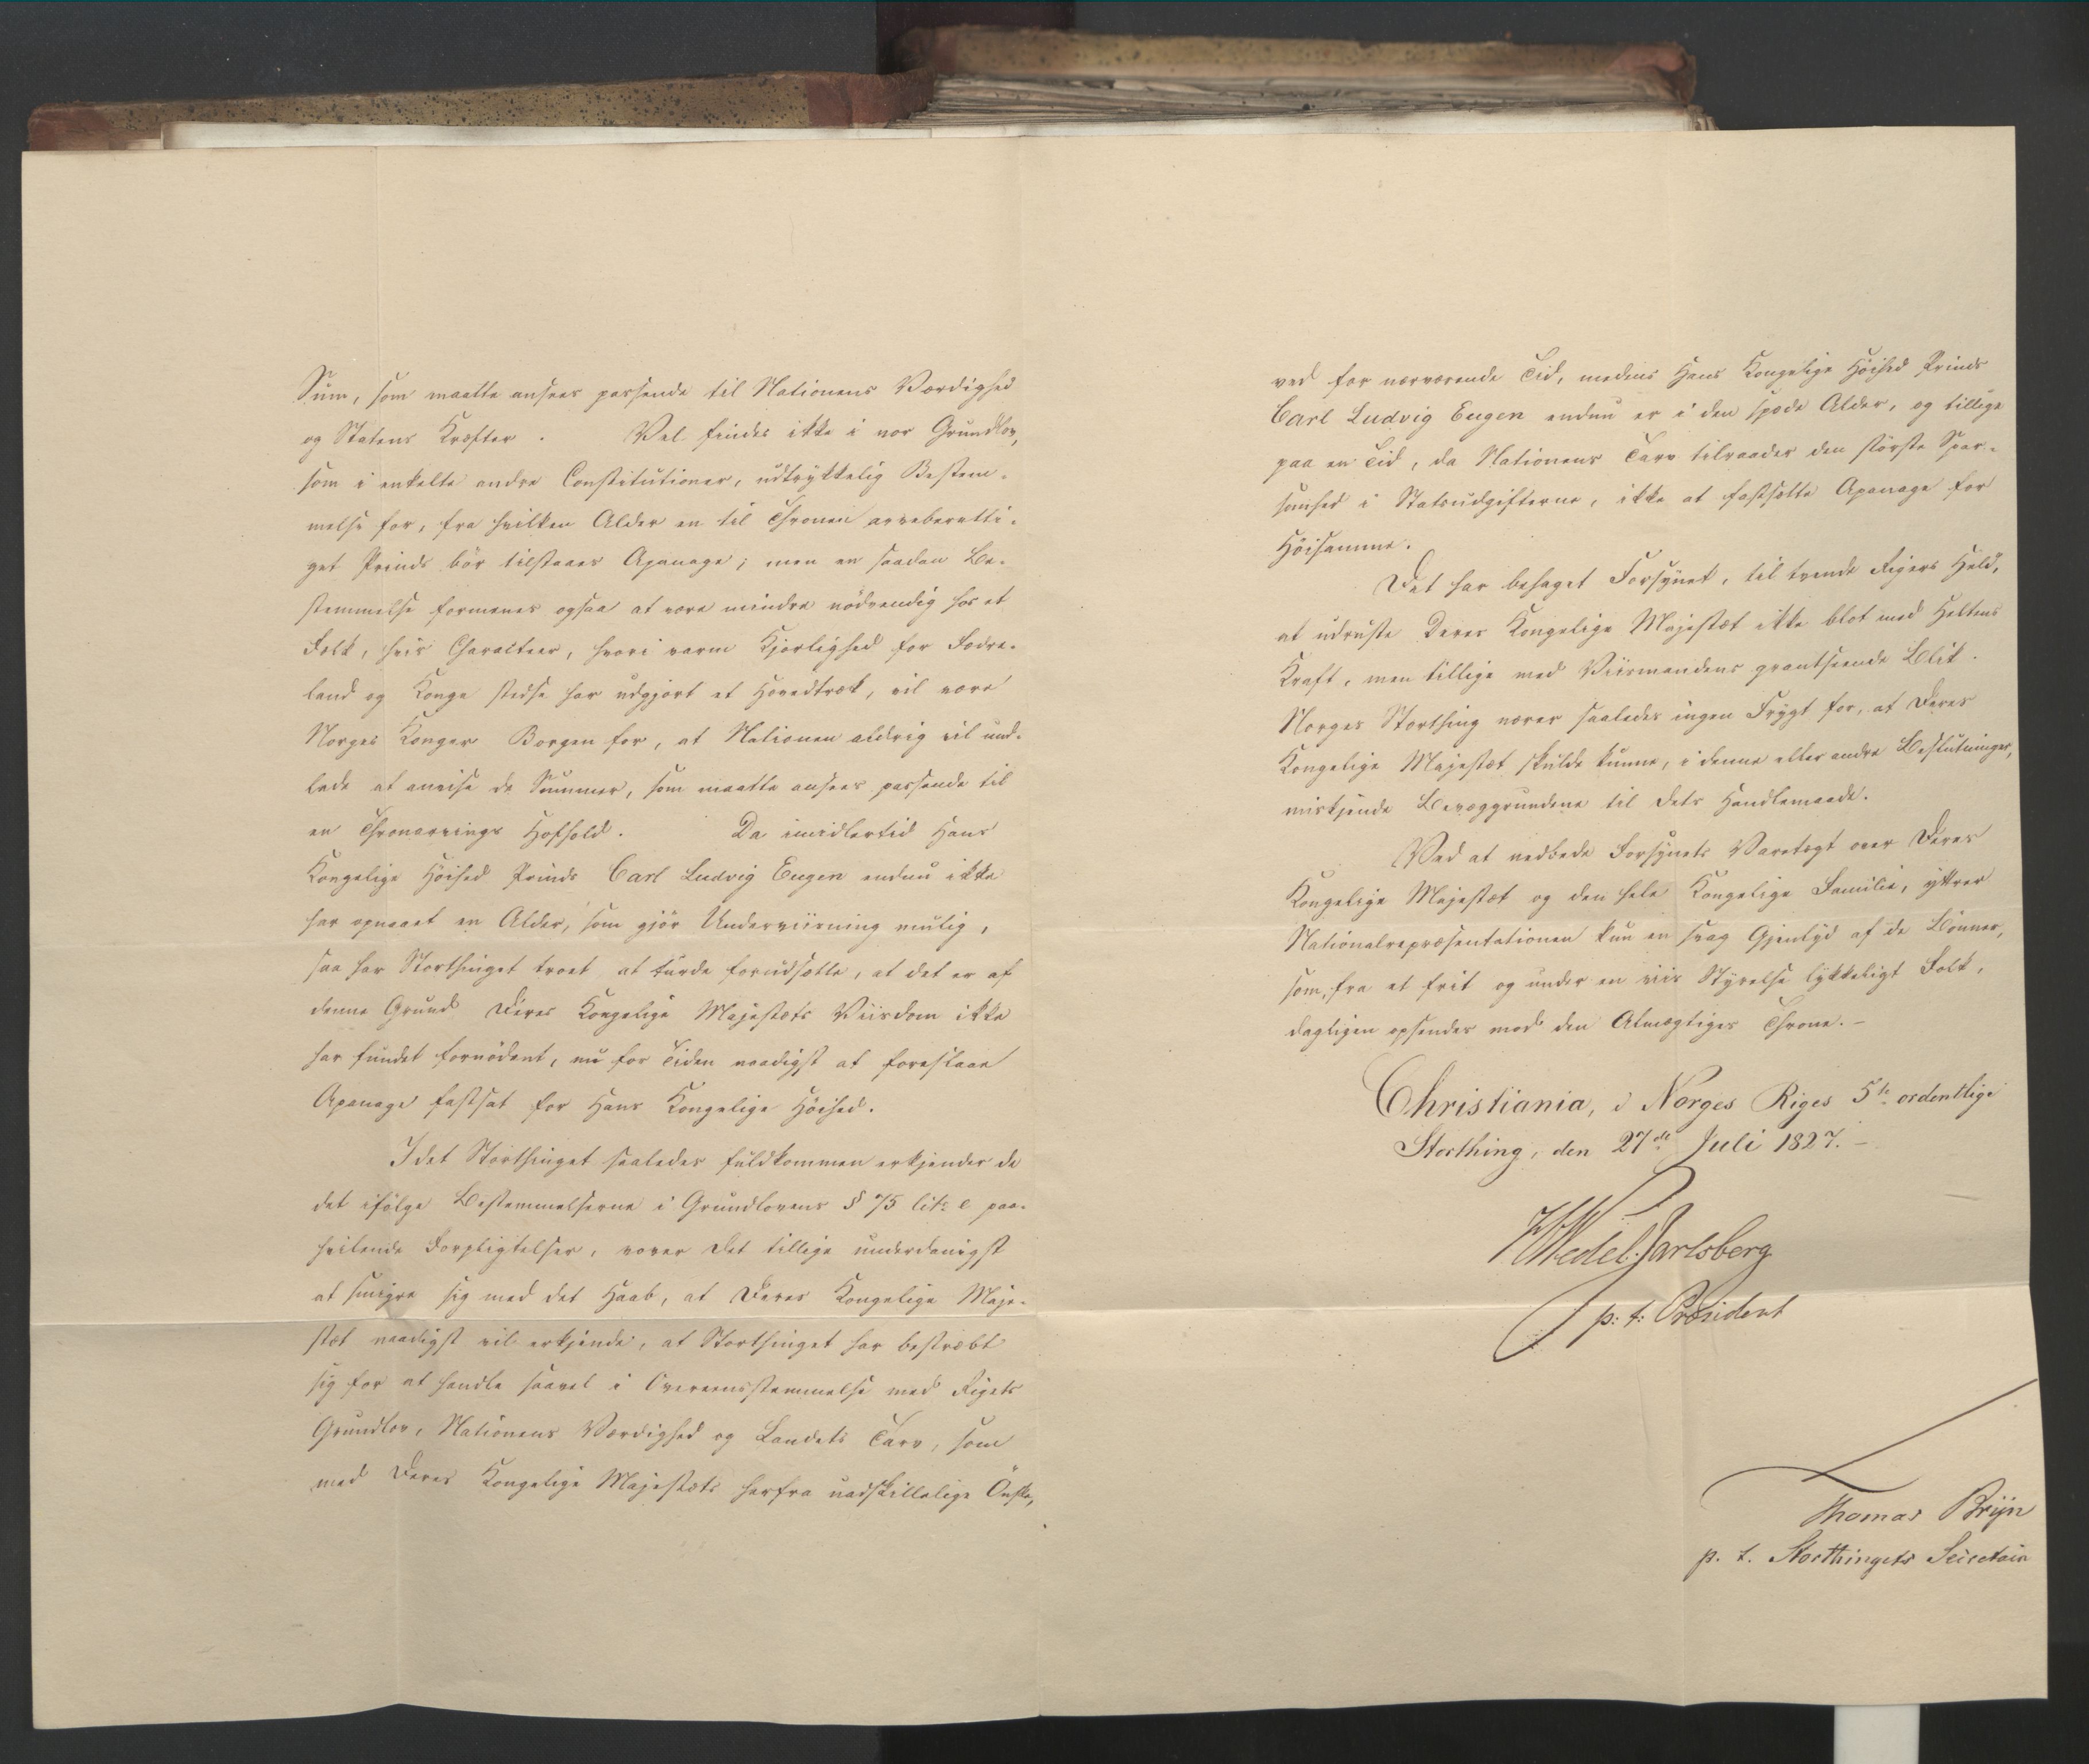 Sum, som maatte ansees passende til Nationens Værdighed
og Statens Kræfter. Vel findes ikke i vor Grundlov,
som i enkelte andre Constitutioner, udtrykkelig Bestem-
melse for, fra hvilken Alder en til Thronen arveberetti-
get Prinds bör tilstaaes Apanage; men en saadan Be-
stemmelse formenes ogsaa at være mindre nödvendig hos et
Folk, hvis Charakteer, hvori varm Kjærlighed for Fædre-
land og Konge stedse har udgjort et Hovedtræk, vil være
Norges Konger Borgen for, at Nationen aldrig vil und-
lade at anvise de Summer, som maatte ansees passende til
en Thronarvings Hofhold. Da imidlertid Hans
Kongelige Höihed Prinds Carl Ludvig Eugen endnu ikke
har opnaaet en Alder, som gjör Underviisning mulig,
saa har Storthinget troet at turde forudsætte, at det er af
denne Grund Deres Kongelige Majestæts Viisdom ikke
har fundet fornödent, nu for Tiden naadigst at foreslaae
Apanage fastsat for Hans Kongelige Höihed.
Idet Storthinget saaledes fuldkommen erkjender de
det ifölge Bestemmelserne i Grundlovens § 75 litr e paa-
hvilende Forpligtelser, vover det tillige underdanigst
at smigre sig med det Haab, at Deres Kongelige Maje-
stæt naadigst vil erkjende, at Storthinget har bestræbt
sig for at handle saavel i Overeensstemmelse med Rigets
Grundlov, Nationens Værdighed og Landets Tarv, som
med Deres Kongelige Majestæts herfra uadskillelige Önske,
ved for nærværende Tid, medens Hans Kongelige Höihed Prinds
Carl Ludvig Eugen endnu er i den späde Alder, og tillige
paa en Tid, da Nationens Tarv tilraader den störste Spar-
somhed i Statsudgifterne, ikke at fastsætte Apanage for
Höisamme.
Det har behaget Forsynet, til tvende Rigers Held,
at udruste Deres Kongelige Majestæt ikke blot med Heltens
Kraft, men tillige med Viismandens grantseende Blik.
Norges Storthing nærer saaledes ingen Frygt for, at Deres
Kongelige Majestæt skulde kunne, i denne eller andre Beslutninger,
miskjende Bevæggrundene til dets Handlemaade.
Ved at nedbede Forsynets Varetægt over Deres
Kongelige Majestæt og den hele Kongelige Familie, yttrer
Nationalrepræsentationen kun en svag Gjenlyd af de Bönner,
som, fra et frit og under en viis Styrelse lykkeligt Folk,
dagligen opsendes mod den Almægtiges Throne. –
Christiania, i Norges Riges 5te ordentlige
Storthing, den 27de Juli 1827. –
HWedel Jarlsberg
p: t: Præsident
Thomas Bryn
p. t. Storthingets Secretair